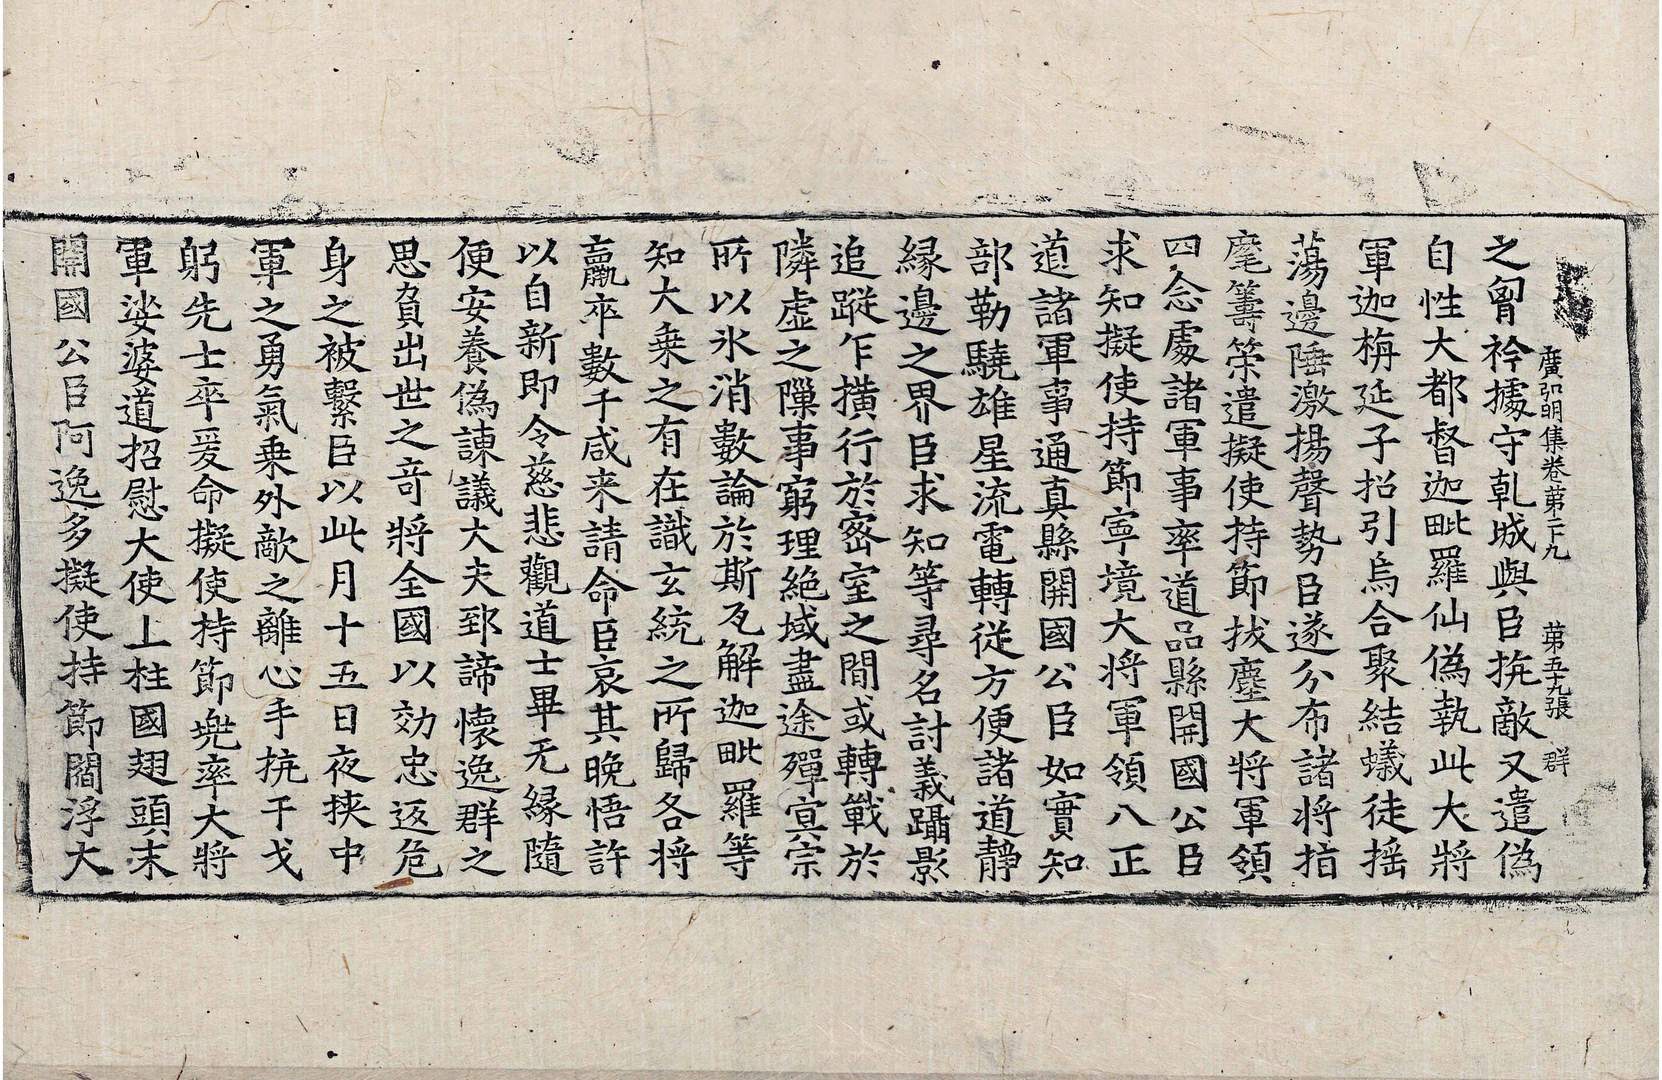 廣弘明集卷第二十九 第五十九張 群
之胷衿據守乹城與臣抗敵又遣偽
自性大都督迦毗羅仙偽執此大將
軍迦栴延子招引烏合聚結蟻徒揺
蕩邊陲激揚聲勢臣遂分布諸將指
麾籌筞遣擬使持節拔塵大將軍領
四念處諸軍事率道品縣開國公臣
求知擬使持節寧境大將軍領八正
道諸軍事通真縣開國公臣如實知
部勒驍雄星流電轉從方便諸道靜
縁邊之界臣求知等尋名討義躡影
追蹤乍撗行於宻室之間或轉戰於
隣虛之㬎事窮理絶域盡途殫㝠宗
所以氷消數論於斯瓦解迦毗羅等
知大乗之有在識玄統之所歸各將
羸卒數千咸来請命臣哀其晚悟許
以自新即令慈悲觀道士畢无縁隨
便安養偽諫議大夫郅諦懷逸群之
思負出世之竒將全國以効忠返危
身之被繫臣以此月十五日夜挾中
軍之勇氣乗外敵之離心手抗干戈
躬先士卒爰命擬使持節兠率大將
軍娑婆道招慰大使上柱國翅頭末
開國公臣阿逸多擬使持節閻浮大